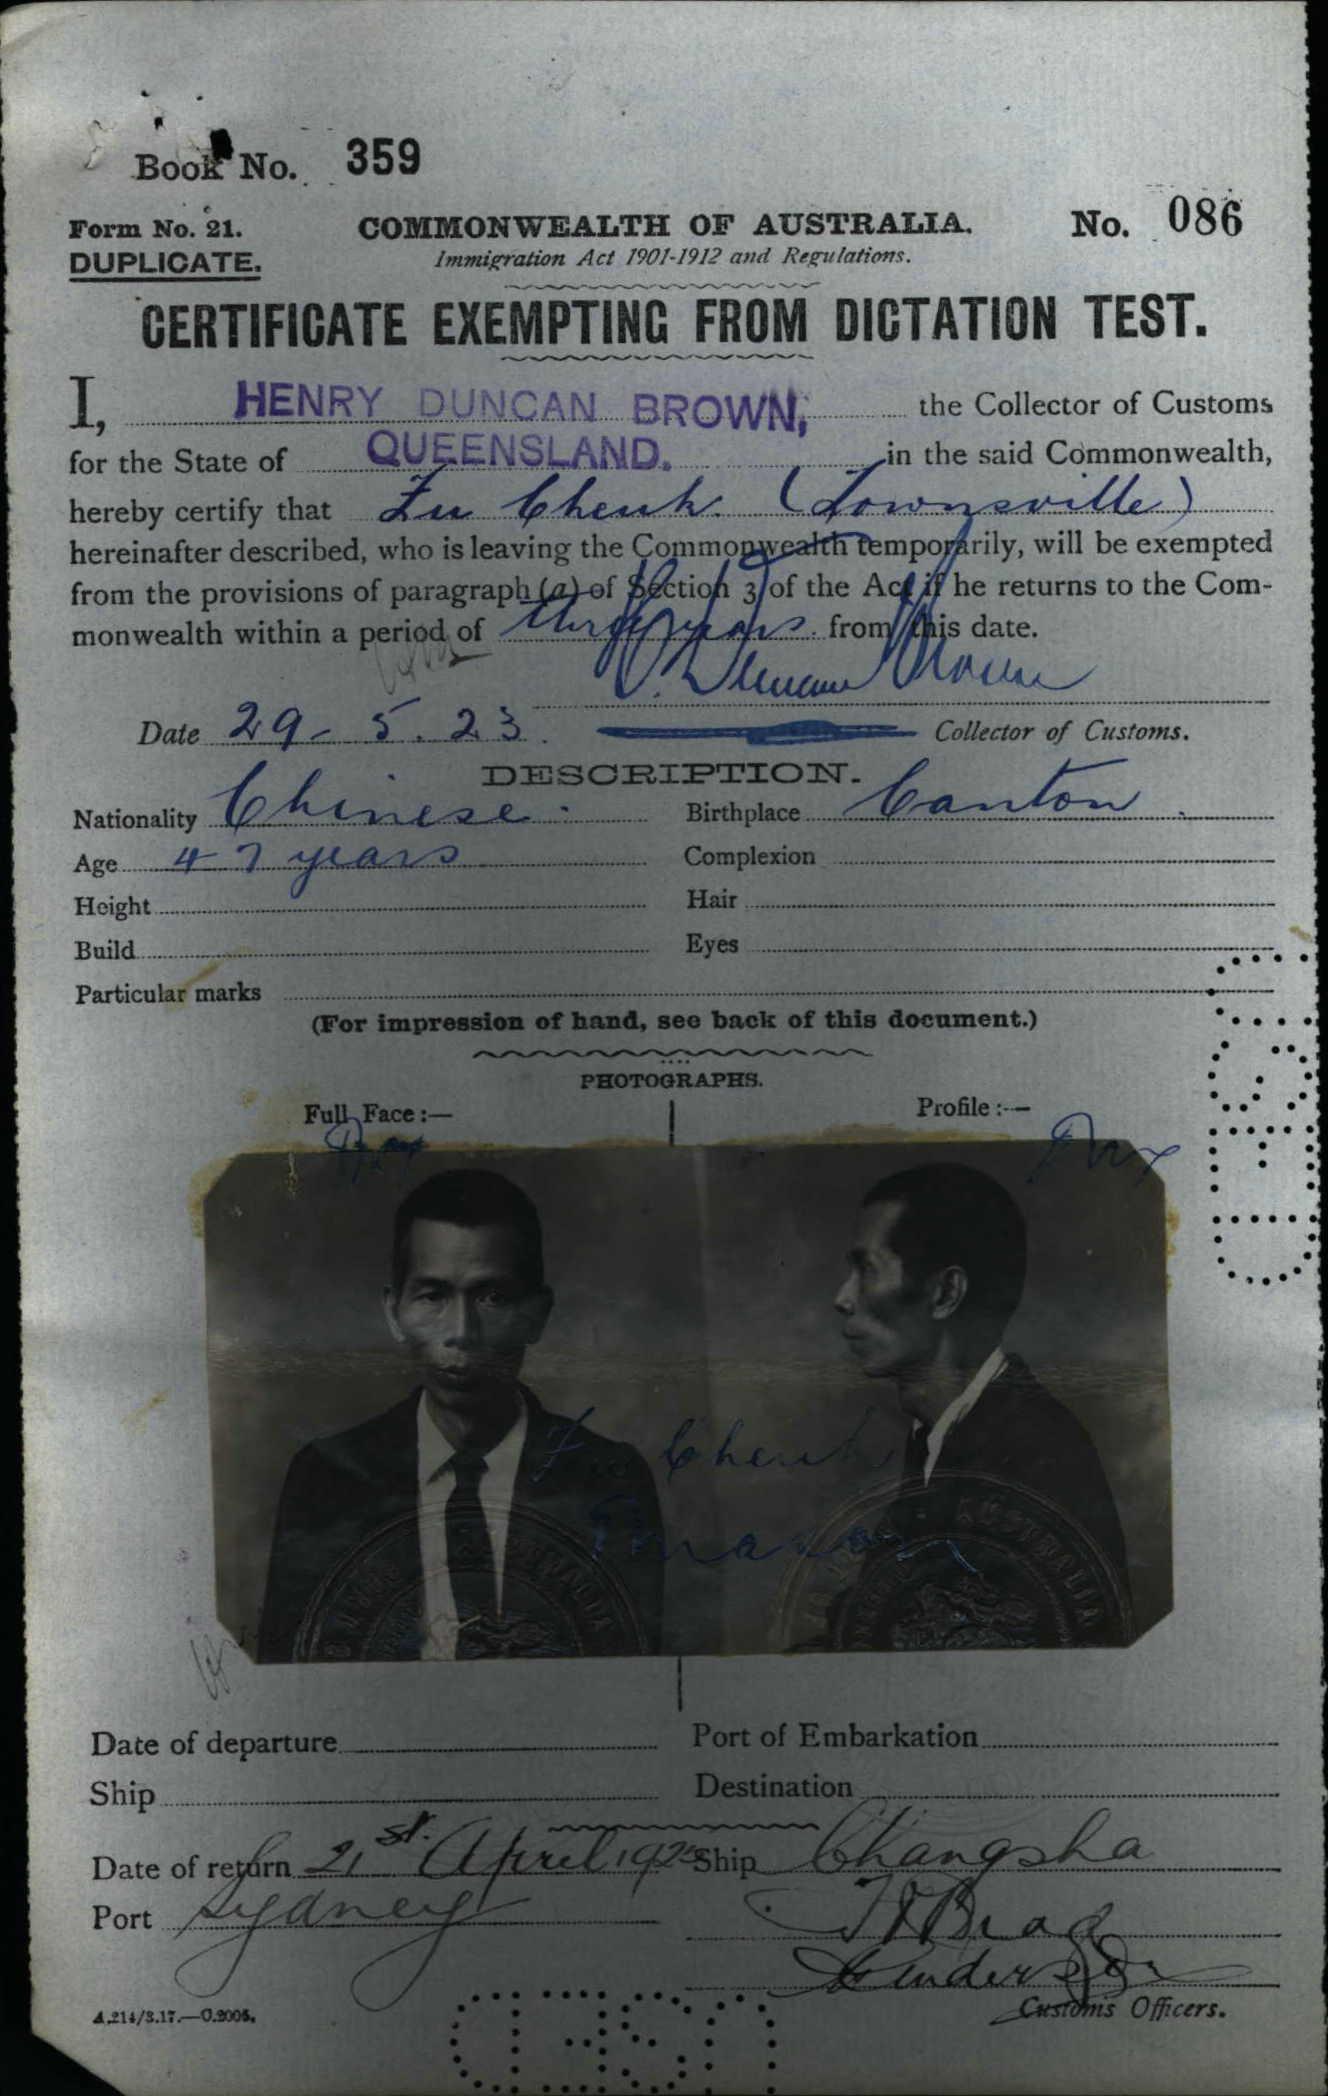 Book No. 359
Form No. 21.
COMMONWEALTH OF AUSTRALIA.
No. 086
DUPLICATE.
Immigration Act 1901-1912 and Regulations.
CERTIFICATE EXEMPTING FROM DICTATION TEST.
I, HENRY DUNCAN BROWN, the Collector of Customs
for the State of QUEENSLAND. in the said Commonwealth,
hereby certify that Zu Cheuk. (Townsville)
hereinafter described, who is leaving the Commonwealth temporarily, will be exempted
from the provisions of paragraph (a) of Section 3 of the Act if he returns to the Com-
monwealth within a period of three years from this date.
Duncan Brown
Date 29-5.23. Collector of Customs.
DESCRIPTION.
Nationality Chinese. Birthplace Canton.
Age 47 years Complexion
Height Hair
Build Eyes
Particular marks
(For impression of hand, see back of this document.)
PHOTOGRAPHS.
Full Face:—
Profile:—
Cheuk
Date of departure Port of Embarkation
Ship Destination
Date of return 21st. April 1925 Ship Changsha
Port Sydney
Customs Officers.
A.214/3.17.—C.2005.
USED